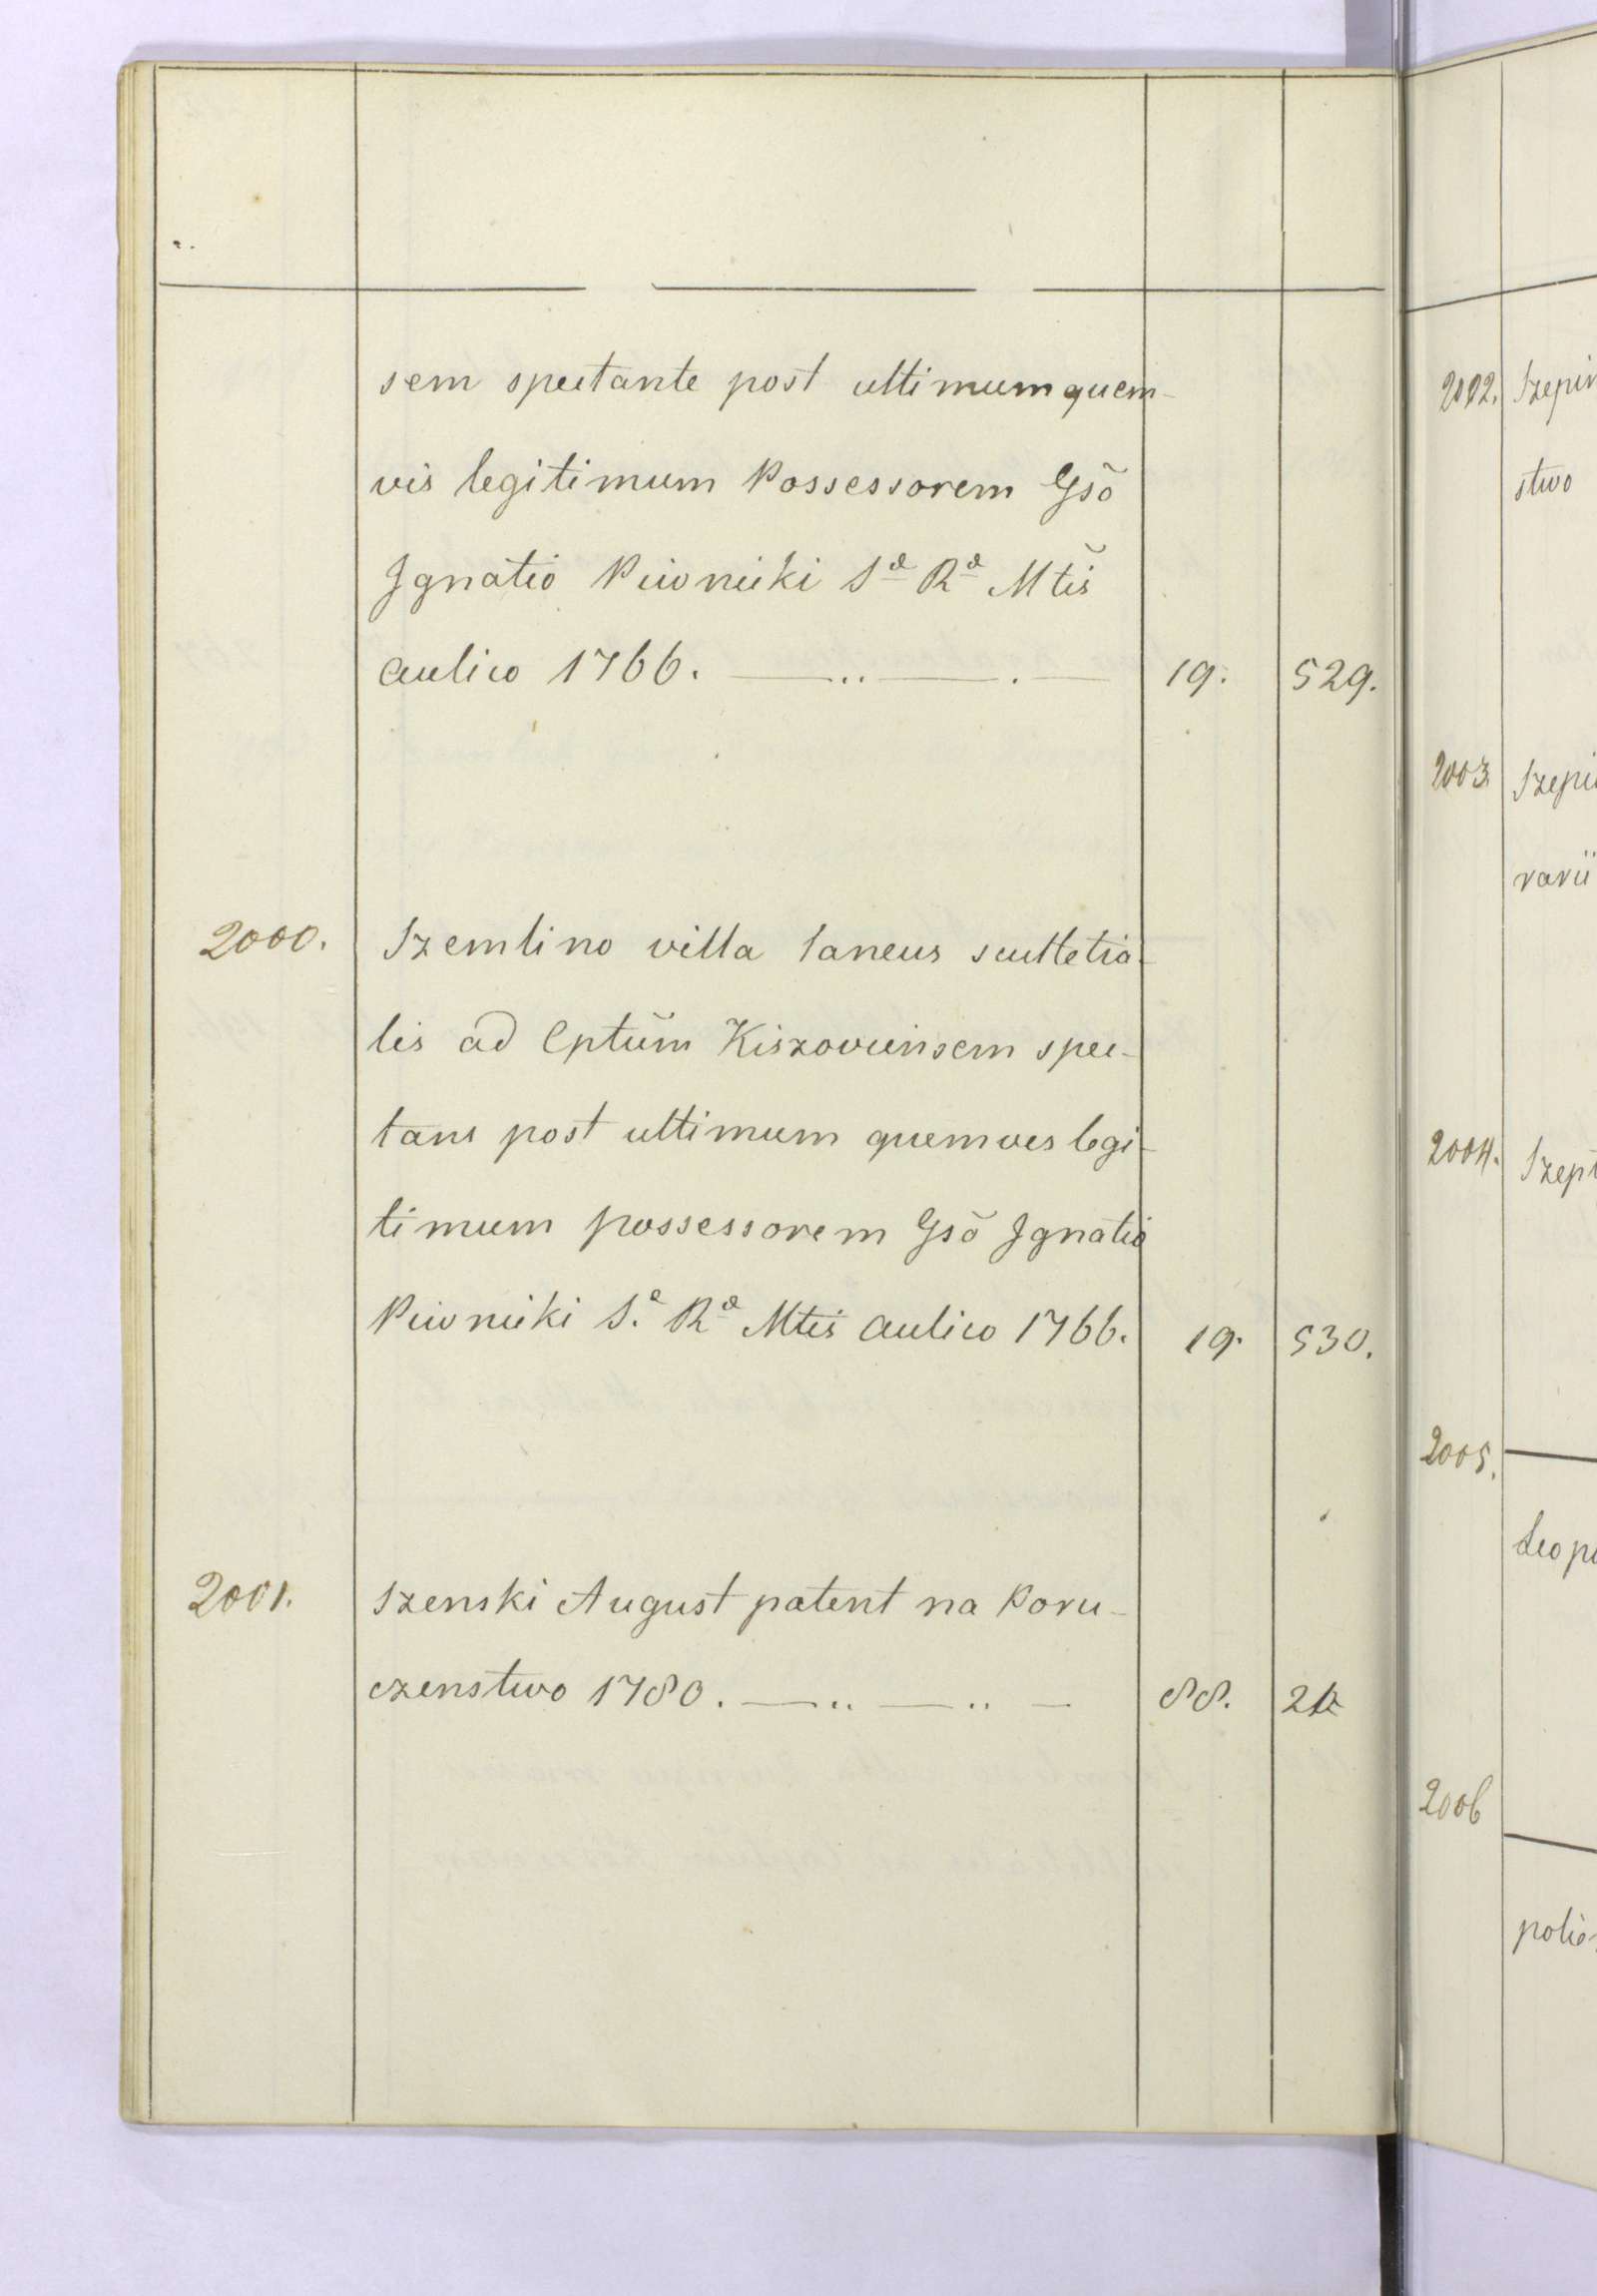 sem spectante post ultimum quem-
vis legitimum Possessorem Gsõ
Ignatio Piwnicki Sᵃ Rᵃ Mtis̃
aulico 1766. —..— . — 19. 529.
2000. Szemlino villa laneus scultetia-
lis ad Cptum̃ Kiszoviensem spec-
tans post ultimum quemvis legi-
timum possessorem Gsõ Ignatio
Piwnicki S.ᵃ Rᵃ Mtis aulico 1766. 19. 530.
2001. Szenski August patent na Poru-
czenstwo 1780. —..—..— 88.
2002.
stwo
2003.
rarii
2004.
2005.
2006